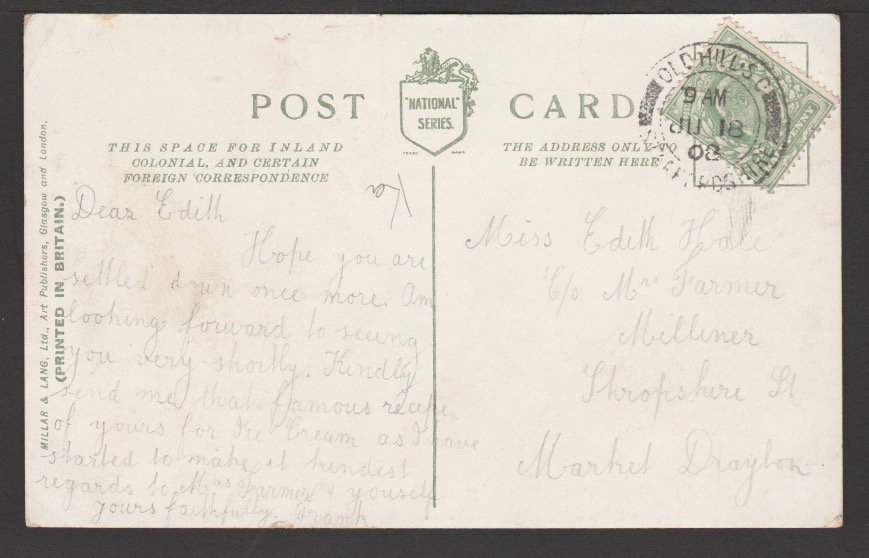 POST CARD
"NATIONAL"
SERIES.
THIS SPACE FOR INLAND
COLONIAL, AND CERTAIN
FOREIGN CORRESPONDENCE
THE ADDRESS ONLY TO
BE WRITTEN HERE
MILLAR & LANG, Ltd., Art Publishers, Glasgow and London.
(PRINTED IN BRITAIN.)
OLD HILL S.O
9 AM
JU 18
08
STAFFORDSHIRE
Dear Edith
Hope you are
settled down once more. Am
looking forward to seeing
you very shortly. Kindly
send me that famous recipe
of yours for Ice Cream as I have
started to make it kindest
regards to Mrs Farmer & youself
yours faithfully. Frank.
Miss Edith Hale
C/o Mrs Farmer
Milliner
Shropshire St
Market Drayton